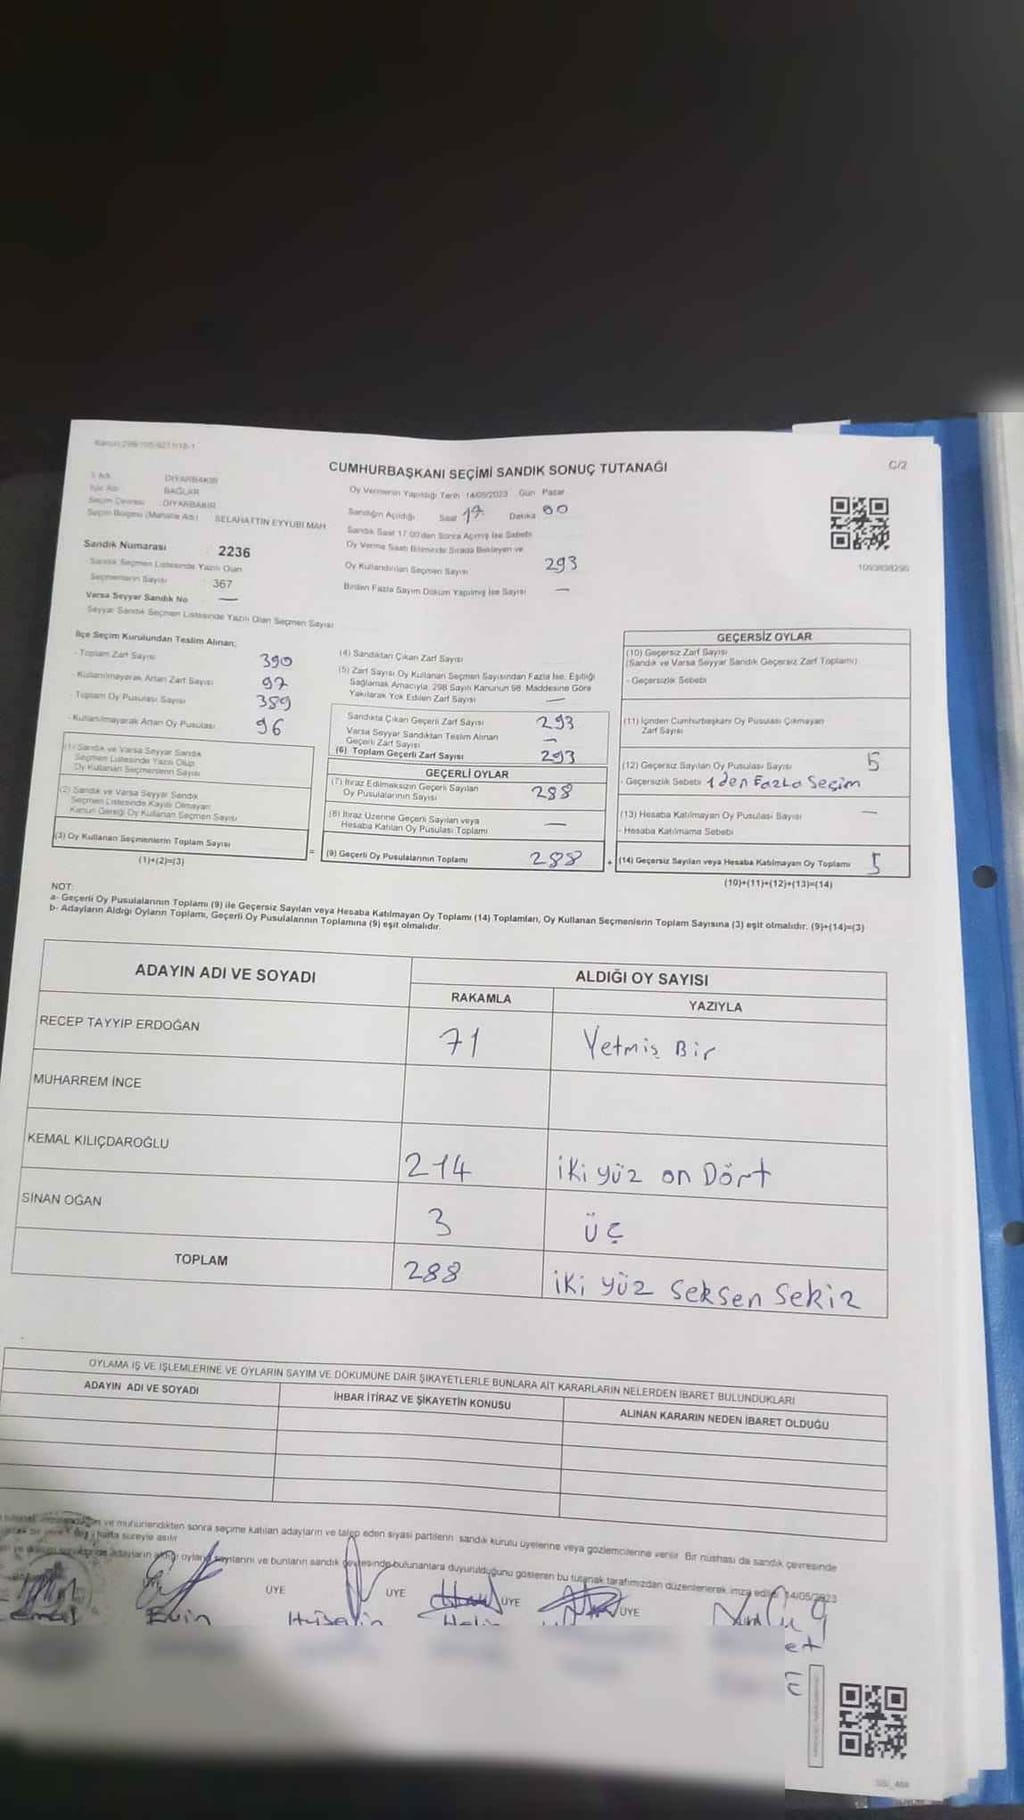 Kanun:298/105-6271/18-1
C/2
CUMHURBAŞKANI SEÇİMİ SANDIK SONUÇ TUTANAĞI
İl Adı DİYARBAKIR
İlçe Adı BAĞLAR
Seçim Çevresi DİYARBAKIR
Seçim Bölgesi (Mahalle Adı) SELAHATTİN EYYUBİ MAH
Oy Vermenin Yapıldığı Tarih 14/05/2023 Gün Pazar
Sandığın Açıldığı Saat 17 Dakika 00
Sandık Saat 17.00'den Sonra Açılmış İse Sebebi
Oy Verme Saati Bitiminde Sırada Bekleyen ve
Oy Kullandırılan Seçmen Sayısı 293
Birden Fazla Sayım Döküm Yapılmış İse Sayısı —
1093838290
Sandık Numarası 2236
Sandık Seçmen Listesinde Yazılı Olan
Seçmenlerin Sayısı 367
Varsa Seyyar Sandık No —
Seyyar Sandık Seçmen Listesinde Yazılı Olan Seçmen Sayısı
İlçe Seçim Kurulundan Teslim Alınan;
- Toplam Zarf Sayısı 390
- Kullanılmayarak Artan Zarf Sayısı 97
- Toplam Oy Pusulası Sayısı 389
- Kullanılmayarak Artan Oy Pusulası 96
(1) Sandık ve Varsa Seyyar Sandık
Seçmen Listesinde Yazılı Olup
Oy Kullanan Seçmenlerin Sayısı
(2) Sandık ve Varsa Seyyar Sandık
Seçmen Listesinde Kayıtlı Olmayan
Kanun Gereği Oy Kullanan Seçmen Sayısı
(3) Oy Kullanan Seçmenlerin Toplam Sayısı
(1)+(2)=(3)
(4) Sandıktan Çıkan Zarf Sayısı
(5) Zarf Sayısı Oy Kullanan Seçmen Sayısından Fazla İse, Eşitliği
Sağlamak Amacıyla, 298 Sayılı Kanunun 98. Maddesine Göre
Yakılarak Yok Edilen Zarf Sayısı —
Sandıkta Çıkan Geçerli Zarf Sayısı 293
Varsa Seyyar Sandıktan Teslim Alınan
Geçerli Zarf Sayısı —
(6) Toplam Geçerli Zarf Sayısı 293
GEÇERLİ OYLAR
(7) İtiraz Edilmeksizin Geçerli Sayılan
Oy Pusulalarının Sayısı 288
(8) İtiraz Üzerine Geçerli Sayılan veya
Hesaba Katılan Oy Pusulası Toplamı —
= (9) Geçerli Oy Pusulalarının Toplamı 288
GEÇERSİZ OYLAR
(10) Geçersiz Zarf Sayısı
(Sandık ve Varsa Seyyar Sandık Geçersiz Zarf Toplamı)
- Geçersizlik Sebebi
(11) İçinden Cumhurbaşkanı Oy Pusulası Çıkmayan
Zarf Sayısı
(12) Geçersiz Sayılan Oy Pusulası Sayısı 5
- Geçersizlik Sebebi 1 den Fazla Seçim
(13) Hesaba Katılmayan Oy Pusulası Sayısı —
- Hesaba Katılmama Sebebi
+ (14) Geçersiz Sayılan veya Hesaba Katılmayan Oy Toplamı 5
(10)+(11)+(12)+(13)=(14)
NOT:
a- Geçerli Oy Pusulalarının Toplamı (9) ile Geçersiz Sayılan veya Hesaba Katılmayan Oy Toplamı (14) Toplamları, Oy Kullanan Seçmenlerin Toplam Sayısına (3) eşit olmalıdır. (9)+(14)=(3)
b- Adayların Aldığı Oyların Toplamı, Geçerli Oy Pusulalarının Toplamına (9) eşit olmalıdır.
ADAYIN ADI VE SOYADI
ALDIĞI OY SAYISI
RAKAMLA YAZIYLA
RECEP TAYYİP ERDOĞAN 71 Yetmiş Bir
MUHARREM İNCE
KEMAL KILIÇDAROĞLU 214 iki yüz on Dört
SİNAN OĞAN 3 üç
TOPLAM 288 iki yüz seksen sekiz
OYLAMA İŞ VE İŞLEMLERİNE VE OYLARIN SAYIM VE DÖKÜMÜNE DAİR ŞİKAYETLERLE BUNLARA AİT KARARLARIN NELERDEN İBARET BULUNDUKLARI
ADAYIN ADI VE SOYADI İHBAR İTİRAZ VE ŞİKAYETİN KONUSU ALINAN KARARIN NEDEN İBARET OLDUĞU
ve mühürlendikten sonra seçime katılan adayların ve talep eden siyasi partilerin sandık kurulu üyelerine veya gözlemcilerine verilir. Bir nüshası da sandık çevresinde
hafta süreyle asılır
adayların aldığı oyların sayılarını ve bunların sandık çevresinde bulunanlara duyurulduğunu gösteren bu tutanak tarafımızdan düzenlenerek imza edildi 14/05/2023
ÜYE ÜYE ÜYE ÜYE
Evin Hüseyin
et
E